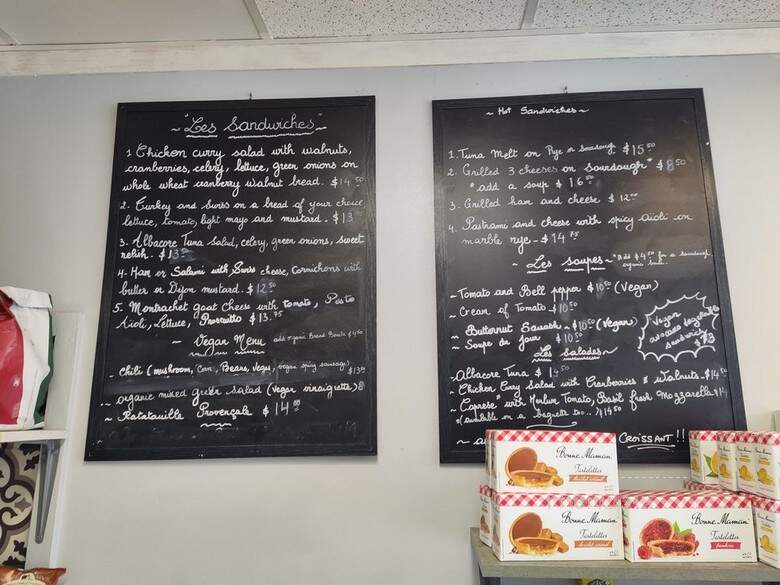 ~ "Les Sandwiches" ~
1 Chicken curry salad with walnuts,
cranberries, celery, lettuce, green onions on
whole wheat cranberry walnut bread. $14.50
2. Turkey and swiss on a bread of your choice
lettuce, tomato, light mayo and mustard. $13
3. Albacore Tuna salad, celery, green onions, sweet
relish. $13
4. Ham or Salami with Swiss cheese, Cornichons with
butter or Dijon mustard. $12.50
5. Montrachet goat Cheese with tomato, Pesto
Aioli, Lettuce, Prosciutto $13.75
~ Vegan Menu add organic Bread Bowls $4.50
- Chili (mushroom, Corn, Beans, Vegs, vegan spicy sausage) $13
- organic mixed green salad (Vegan vinaigrette) 8
~ Ratatouille Provençale $14.00
~ Hot Sandwiches ~
1. Tuna Melt on Rye or Sourdough $15.50
2. Grilled 3 cheeses on sourdough * $8.50
* add a soup $16
3. Grilled ham and cheese $12
4. Pastrami and cheese with spicy aioli on
marble rye - $14.75
~ Les soupes ~ * Add $4.50 for a sourdough
organic
- Tomato and Bell pepper $10.50 (Vegan)
- Cream of Tomato $10.50
~ Butternut Squash - $10.50 (Vegan)
~ Soupe du Jour $10.50
Vegan
avocado
sandwich
$13
Les Salades ~
Albacore Tuna $14.50
~ Chicken Curry Salad with Cranberries & Walnuts - $14.50
~ Caprese * with Heirloom Tomato, Basil fresh Mozzarella $14
* (available on a baguette too... $14.50
CROISSANT!!
Bonne Maman
Tartelettes
chocolat caramel
Bonne Maman
Tartelettes
chocolat caramel
Bonne Maman
Tartelettes
framboise